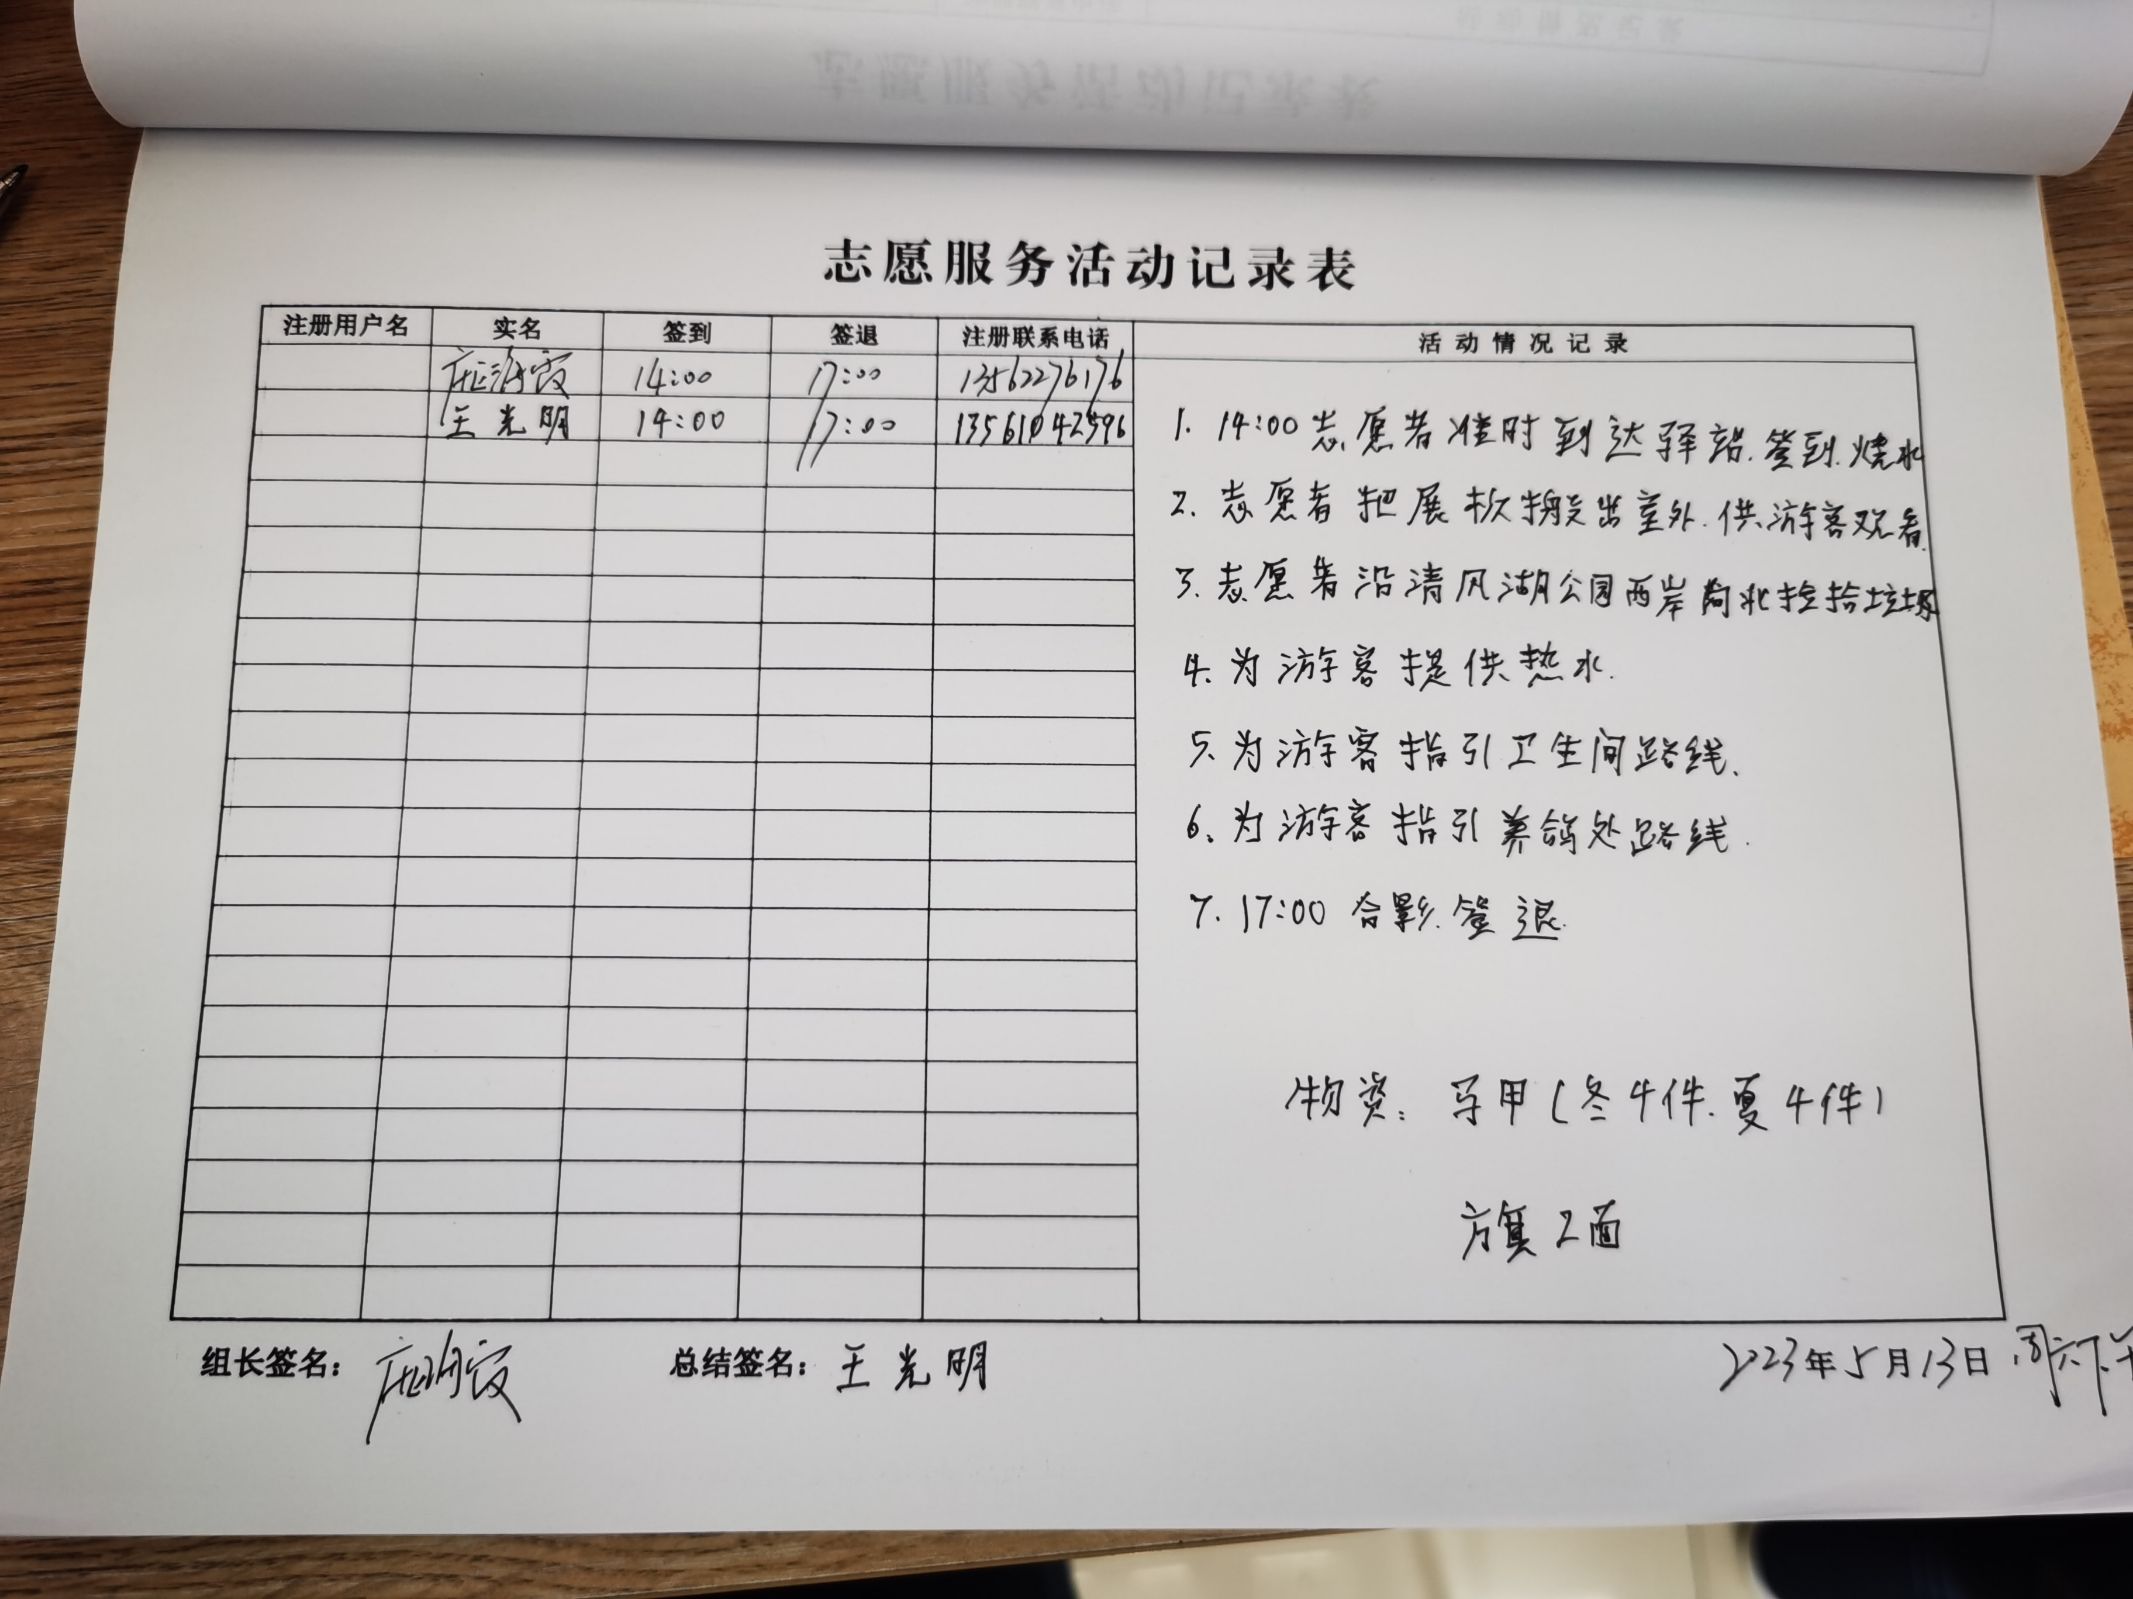 志愿服务活动记录表
注册用户名 实名 签到 签退 注册联系电话 活动情况记录
14:00 17:00 13562276176
王光明 14:00 17:00 13561042596
1. 14:00志愿者准时到达驿站.签到.烧水
2. 志愿者把展板搬出室外.供游客观看.
3. 志愿者沿清风湖公园两岸向北捡拾垃圾
4. 为游客提供热水.
5. 为游客指引卫生间路线.
6. 为游客指引养鸽处路线.
7. 17:00 合影.签退.
物资: 马甲(冬4件.夏4件)
方旗2面
组长签名: 总结签名: 王光明 2023年5月13日 周六下午